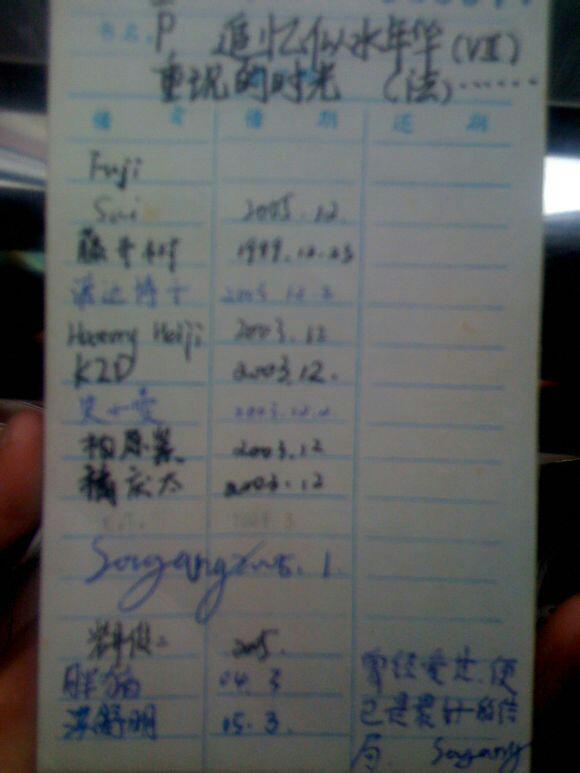 书名 P 追忆似水年华(VII)
重现的时光 (法)……
借 者 借 期 还 期
Fuji
Sui 2005.12
藤井树 1999.12.23
派达博士 2003.12.2
Hommy Heiji 2003.12
KID 2003.12.
2003.12.2
相原 2003.12
橘庆太 2003.12
Sougang 2005.1
2005.
胖猫 04.3
洪舒明 05.3.
曾经爱过,便
已是最好的结
局. Sougang